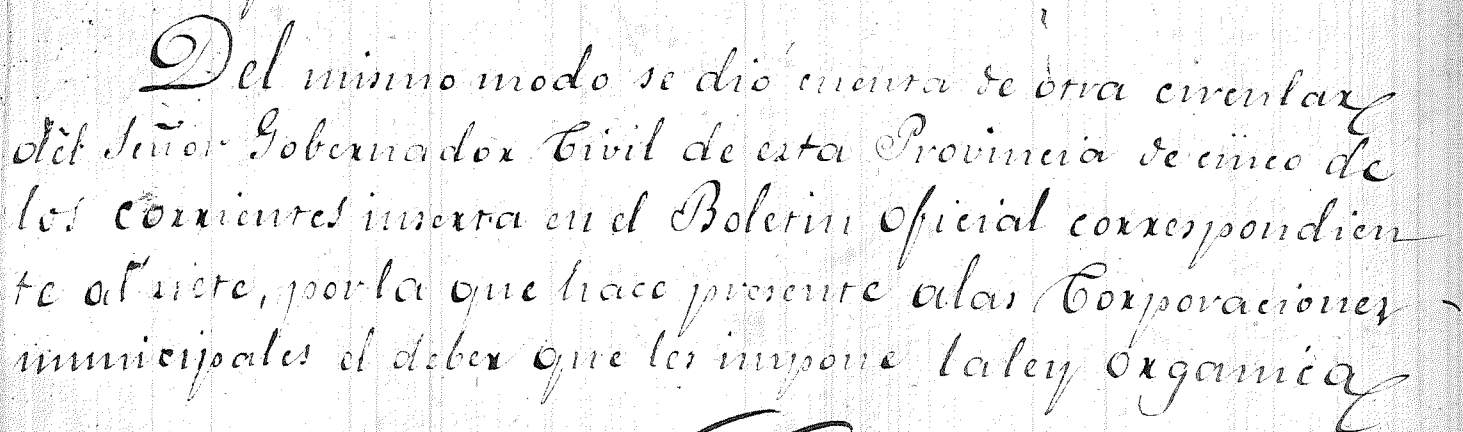 Del mismo modo se dió cuenta de otra circular
del Señor Gobernador Civil de esta Provincia de cinco de
los corrientes inserta en el Boletin Oficial correspondien
te al siete, por la que hace presente alas Corporaciones
municipales el deber que les impone la ley organica